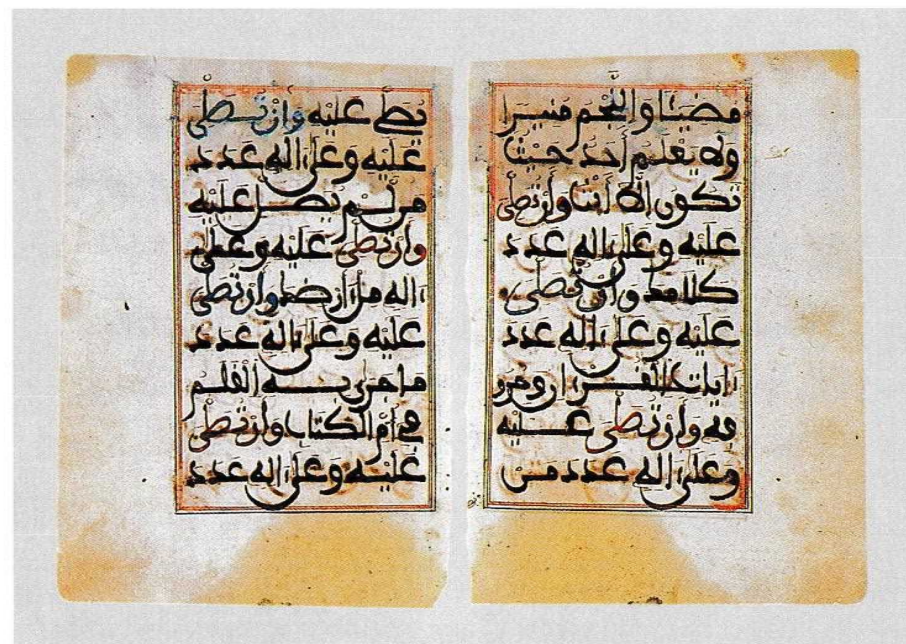 مضيئا والنجم منيرا
ولا يعلم أحد حيث
تكون إلا أنت وأن تصلى
عليه وعلى اله عدد
كلامك وأن تصلى
عليه وعلى اله عدد
ءايات القرءان وحرو
فه وأن تصلى عليه
وعلى ءاله عدد من
يصلى عليه وأن تصلى
عليه وعلى ءاله عدد
من لم يصل عليه
وأن تصلى عليه وعلى
ءاله ملء أرضك وأن تصلى
عليه وعلى ءاله عدد
ما جرى به القلم
في أم الكتاب وأن تصلى
عليه وعلى ءاله عدد